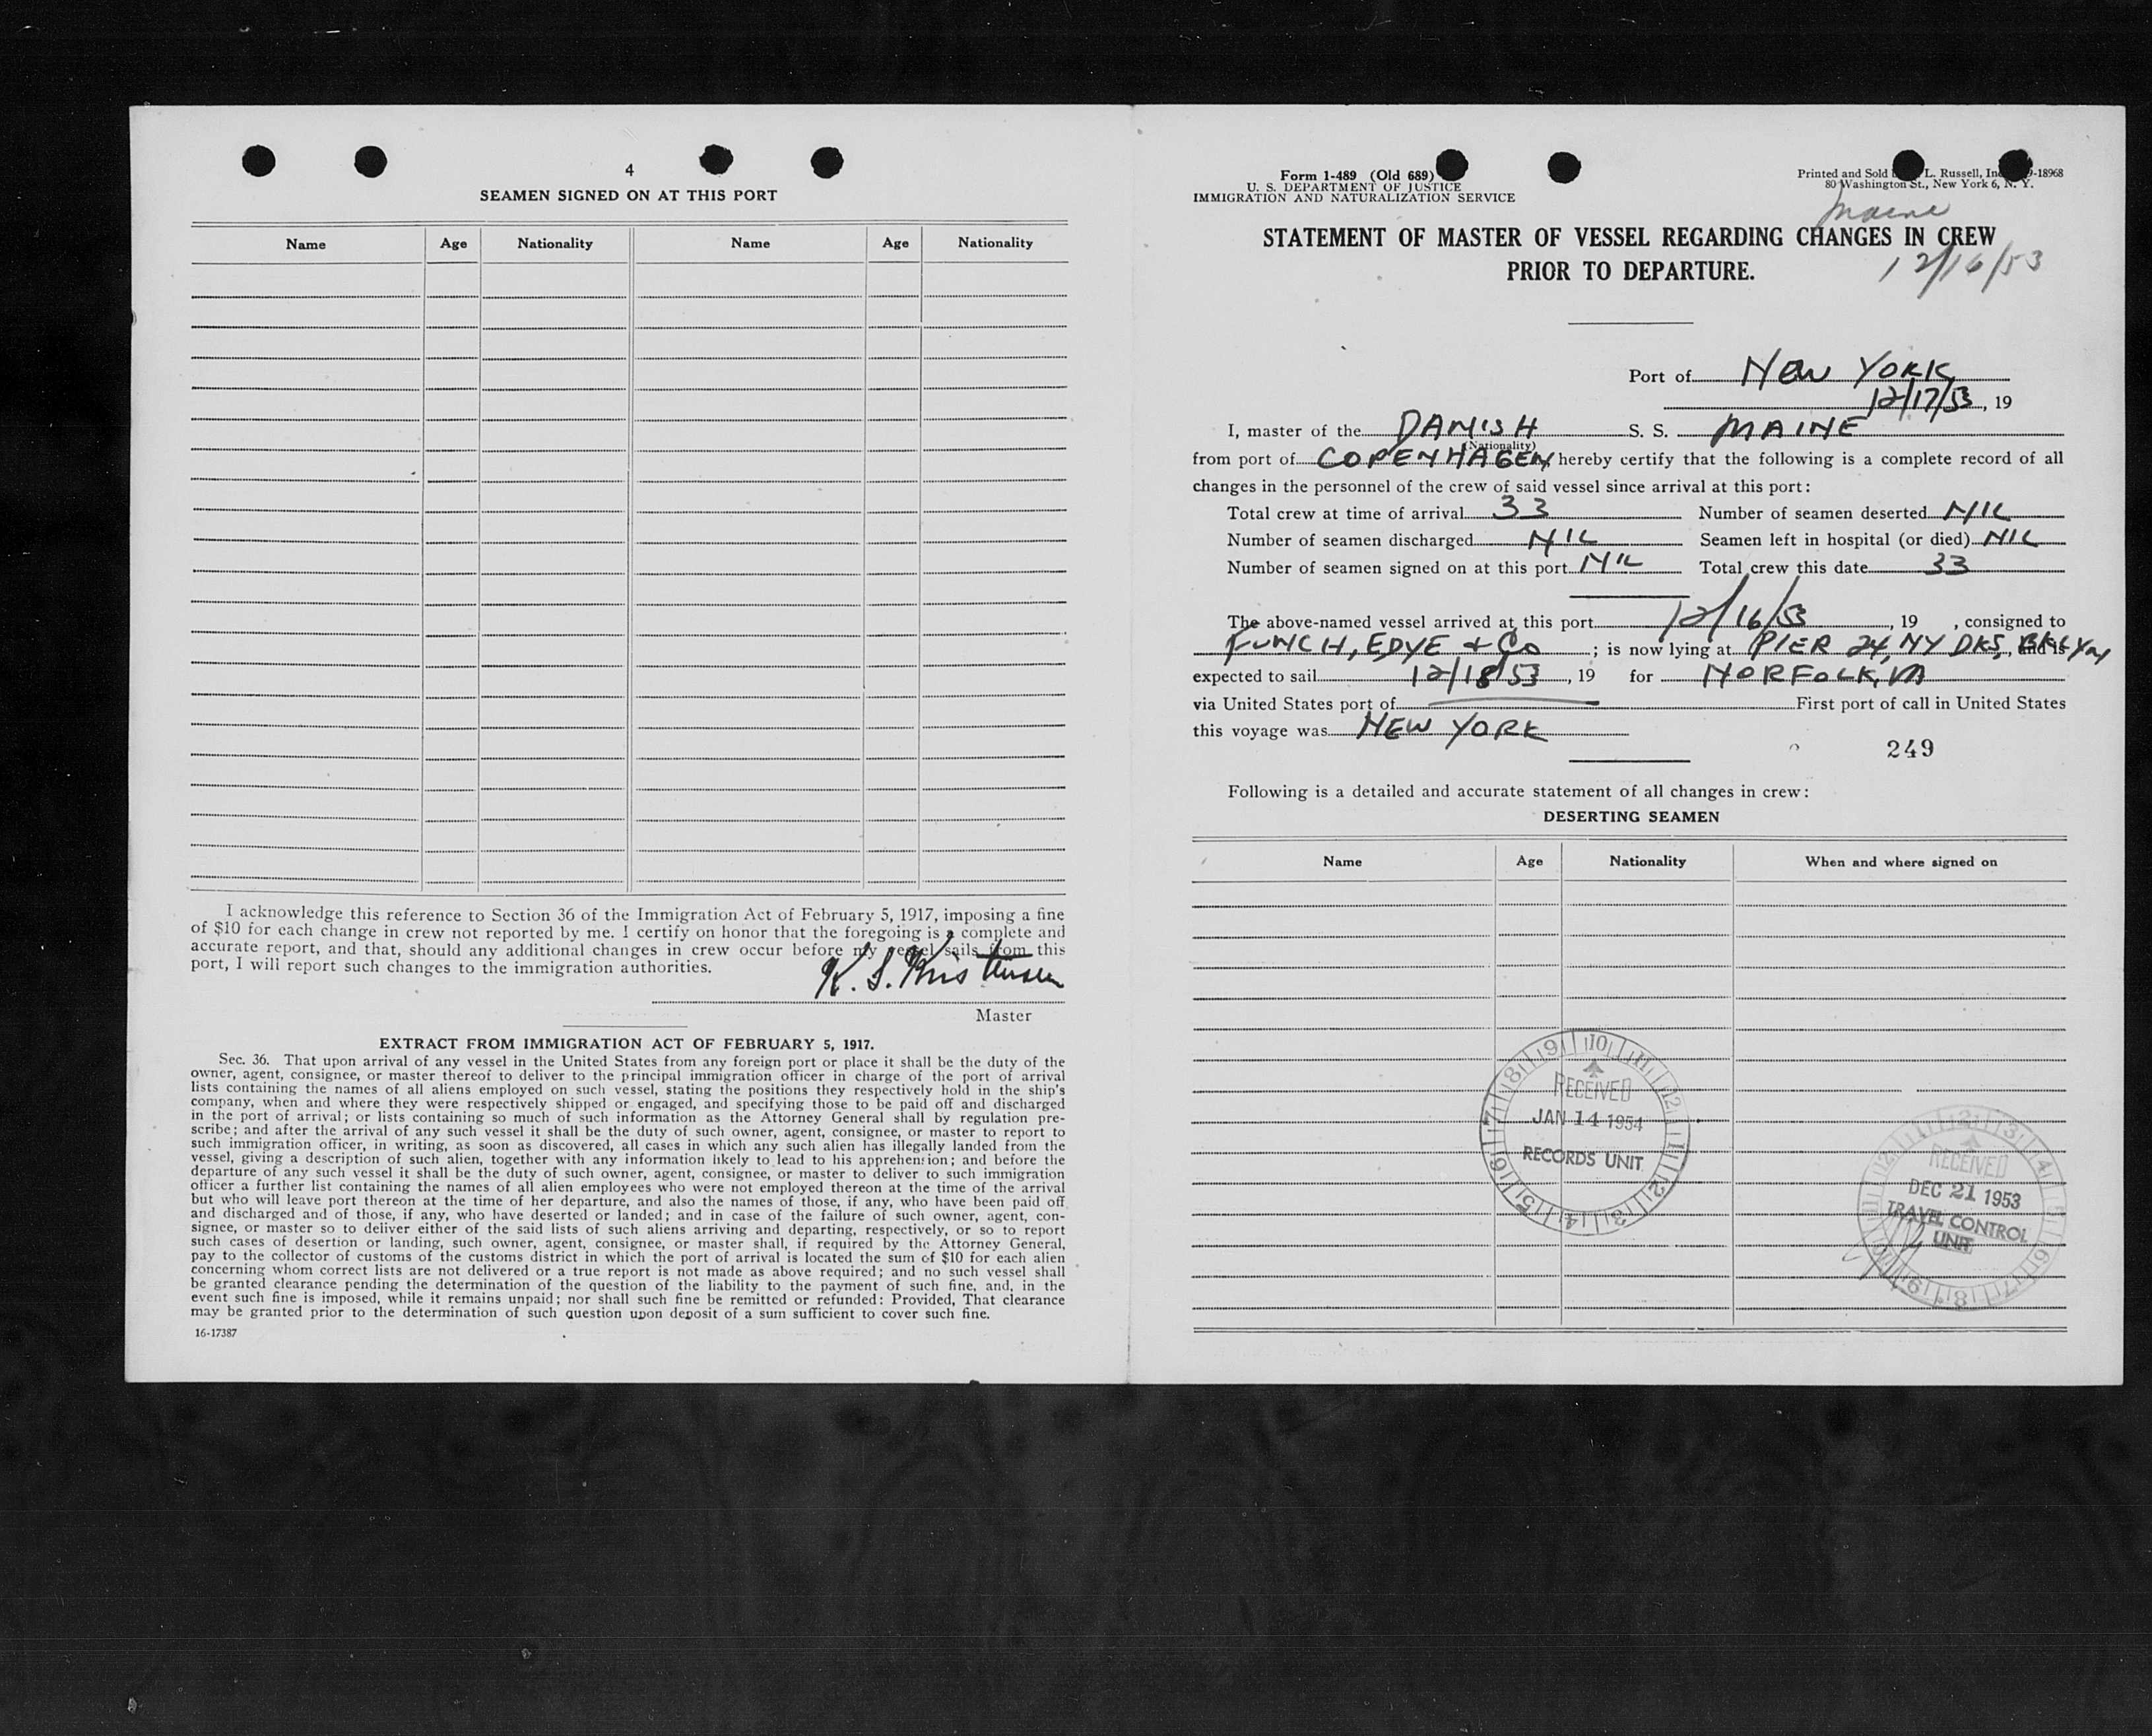 4
SEAMEN SIGNED ON AT THIS PORT
Name Age Nationality Name Age Nationality
I acknowledge this reference to Section 36 of the Immigration Act of February 5, 1917, imposing a fine
of $10 for each change in crew not reported by me. I certify on honor that the foregoing is a complete and
accurate report, and that, should any additional changes in crew occur before my vessel sails from this
port, I will report such changes to the immigration authorities.
K. S. Kristensen
Master
EXTRACT FROM IMMIGRATION ACT OF FEBRUARY 5, 1917.
Sec. 36. That upon arrival of any vessel in the United States from any foreign port or place it shall be the duty of the
owner, agent, consignee, or master thereof to deliver to the principal immigration officer in charge of the port of arrival
lists containing the names of all aliens employed on such vessel, stating the positions they respectively hold in the ship's
company, when and where they were respectively shipped or engaged, and specifying those to be paid off and discharged
in the port of arrival; or lists containing so much of such information as the Attorney General shall by regulation pre-
scribe; and after the arrival of any such vessel it shall be the duty of such owner, agent, consignee, or master to report to
such immigration officer, in writing, as soon as discovered, all cases in which any such alien has illegally landed from the
vessel, giving a description of such alien, together with any information likely to lead to his apprehension; and before the
departure of any such vessel it shall be the duty of such owner, agent, consignee, or master to deliver to such immigration
officer a further list containing the names of all alien employees who were not employed thereon at the time of the arrival
but who will leave port thereon at the time of her departure, and also the names of those, if any, who have been paid off
and discharged and of those, if any, who have deserted or landed; and in case of the failure of such owner, agent, con-
signee, or master so to deliver either of the said lists of such aliens arriving and departing, respectively, or so to report
such cases of desertion or landing, such owner, agent, consignee, or master shall, if required by the Attorney General,
pay to the collector of customs of the customs district in which the port of arrival is located the sum of $10 for each alien
concerning whom correct lists are not delivered or a true report is not made as above required; and no such vessel shall
be granted clearance pending the determination of the question of the liability to the payment of such fine, and, in the
event such fine is imposed, while it remains unpaid; nor shall such fine be remitted or refunded: Provided, That clearance
may be granted prior to the determination of such question upon deposit of a sum sufficient to cover such fine.
16-17387
Form 1-489 (Old 689)
U. S. DEPARTMENT OF JUSTICE
IMMIGRATION AND NATURALIZATION SERVICE
Printed and Sold L. Russell, Inc. -18968
80 Washington St., New York 6, N. Y.
Maine
STATEMENT OF MASTER OF VESSEL REGARDING CHANGES IN CREW
PRIOR TO DEPARTURE.
12/16/53
Port of NEW YORK
12/17/53, 19
I, master of the DANISH S. S. MAINE
(Nationality)
from port of COPENHAGEN, hereby certify that the following is a complete record of all
changes in the personnel of the crew of said vessel since arrival at this port:
Total crew at time of arrival 33 Number of seamen deserted NIL
Number of seamen discharged NIL Seamen left in hospital (or died) NIL
Number of seamen signed on at this port NIL Total crew this date 33
The above-named vessel arrived at this port 12/16/53, 19 , consigned to
FUNCH, EDYE & Co ; is now lying at PIER 24, NY DKS, BKLYN, and is
expected to sail 12/18/53, 19 for NORFOLK, VA
via United States port of First port of call in United States
this voyage was NEW YORK
249
Following is a detailed and accurate statement of all changes in crew:
DESERTING SEAMEN
Name Age Nationality When and where signed on
RECEIVED
JAN 14 1954
RECORDS UNIT
RECEIVED
DEC 21 1953
TRAVEL CONTROL
UNIT